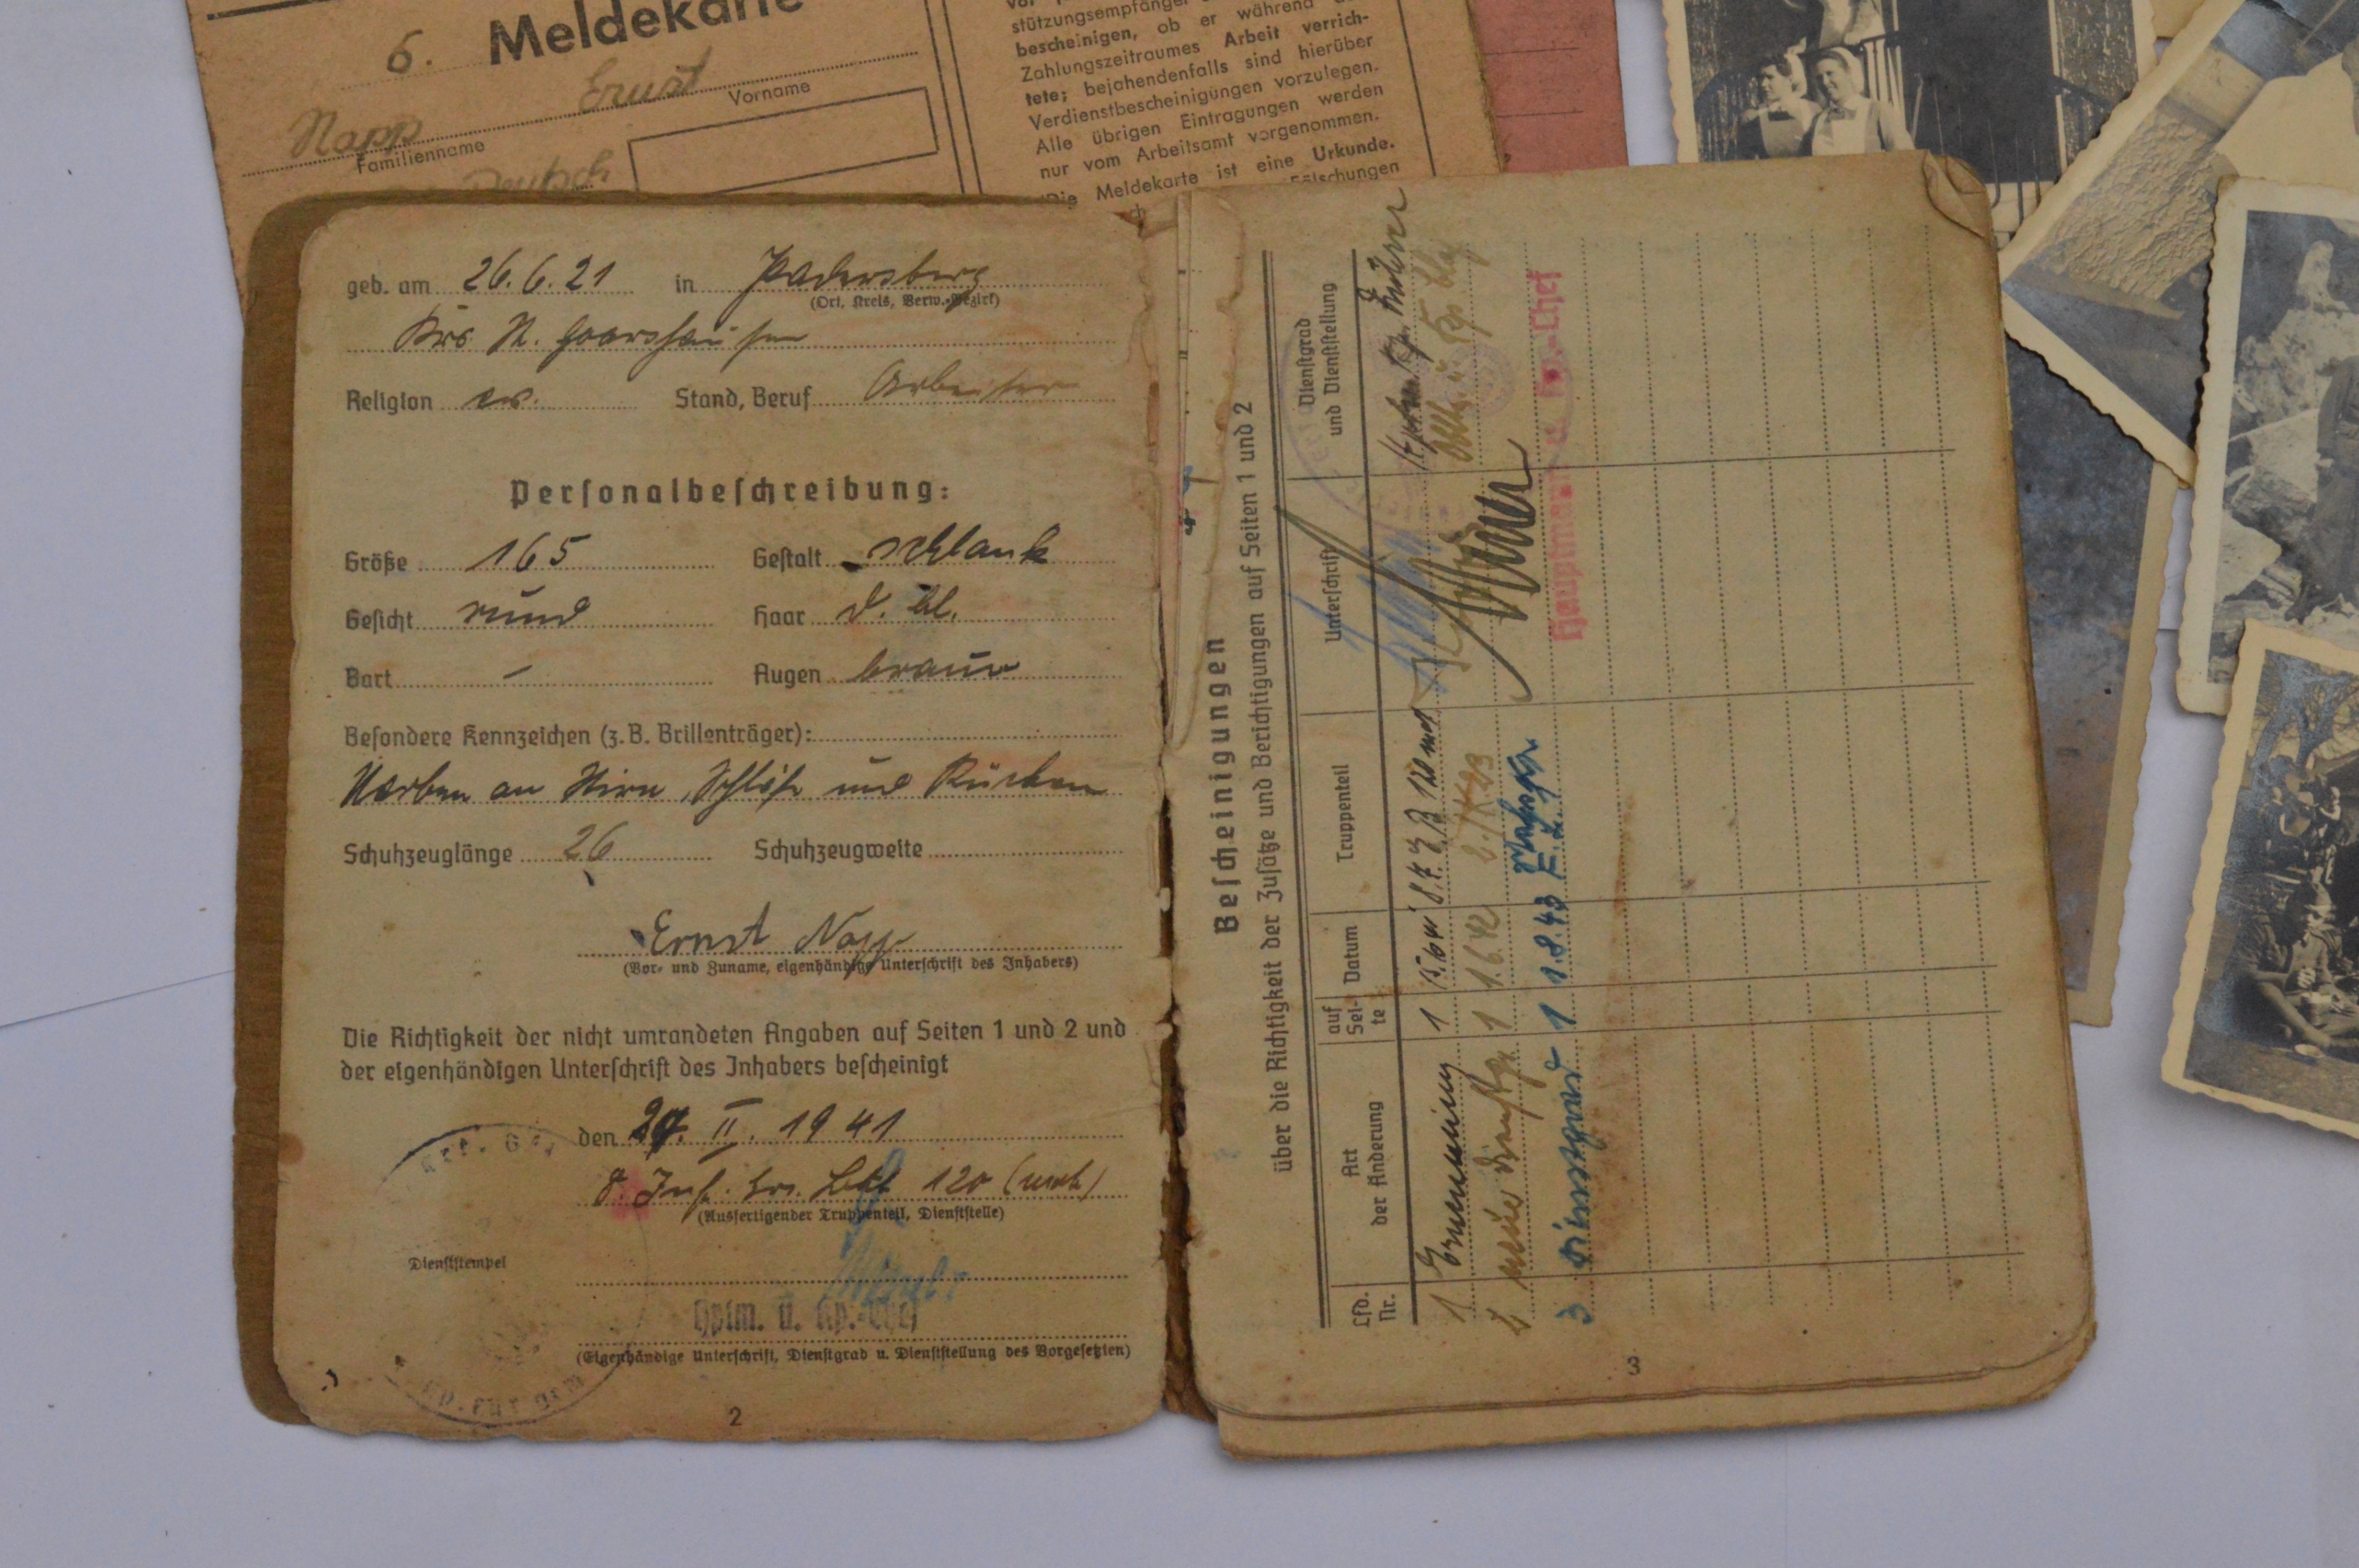 6. Meldekarte
Ernst
Vorname
Napp
Familienname
Deutsch
stützungsempfänger
bescheinigen, ob er während
Zahlungszeitraumes Arbeit verrich-
tete; bejahendenfalls sind hierüber
Verdienstbescheinigungen vorzulegen.
Alle übrigen Eintragungen werden
nur vom Arbeitsamt vorgenommen.
Die Meldekarte ist eine Urkunde.
Fälschungen
geb. am 26.6.21 in Patersberg
(Ort, Kreis, Verw.-Bezirk)
Krs. St. Goarshausen
Religion ev. Stand, Beruf Arbeiter
Personalbeschreibung:
Größe 165 Gestalt schlank
Gesicht rund Haar d. bl.
Bart — Augen braun
Besondere Kennzeichen (z. B. Brillenträger):
Narben an Stirn, Schläfe und Rücken
Schuhzeuglänge 26 Schuhzeugweite
Ernst Napp
(Vor- und Zuname, eigenhändige Unterschrift des Inhabers)
Die Richtigkeit der nicht umrandeten Angaben auf Seiten 1 und 2 und
der eigenhändigen Unterschrift des Inhabers bescheinigt
den II. 1941
Inf. Ers. Btl. 120 (mot)
(Ausfertigender Truppenteil, Dienststelle)
Dienststempel
Hptm. u. Kp.-Chef
(Eigenhändige Unterschrift, Dienstgrad u. Dienststellung des Vorgesetzten)
2
Bescheinigungen
über die Richtigkeit der Zusätze und Berichtigungen auf Seiten 1 und 2
Lfd. Nr. Art der Änderung auf Seite Datum Truppenteil Unterschrift Dienstgrad und Dienststellung
1 Ernennung 1
2 neuer Dienstgr. 1 1.6.42
3 Dienstgrad 1 1.8.43
Hauptmann u. Kp.-Chef
3